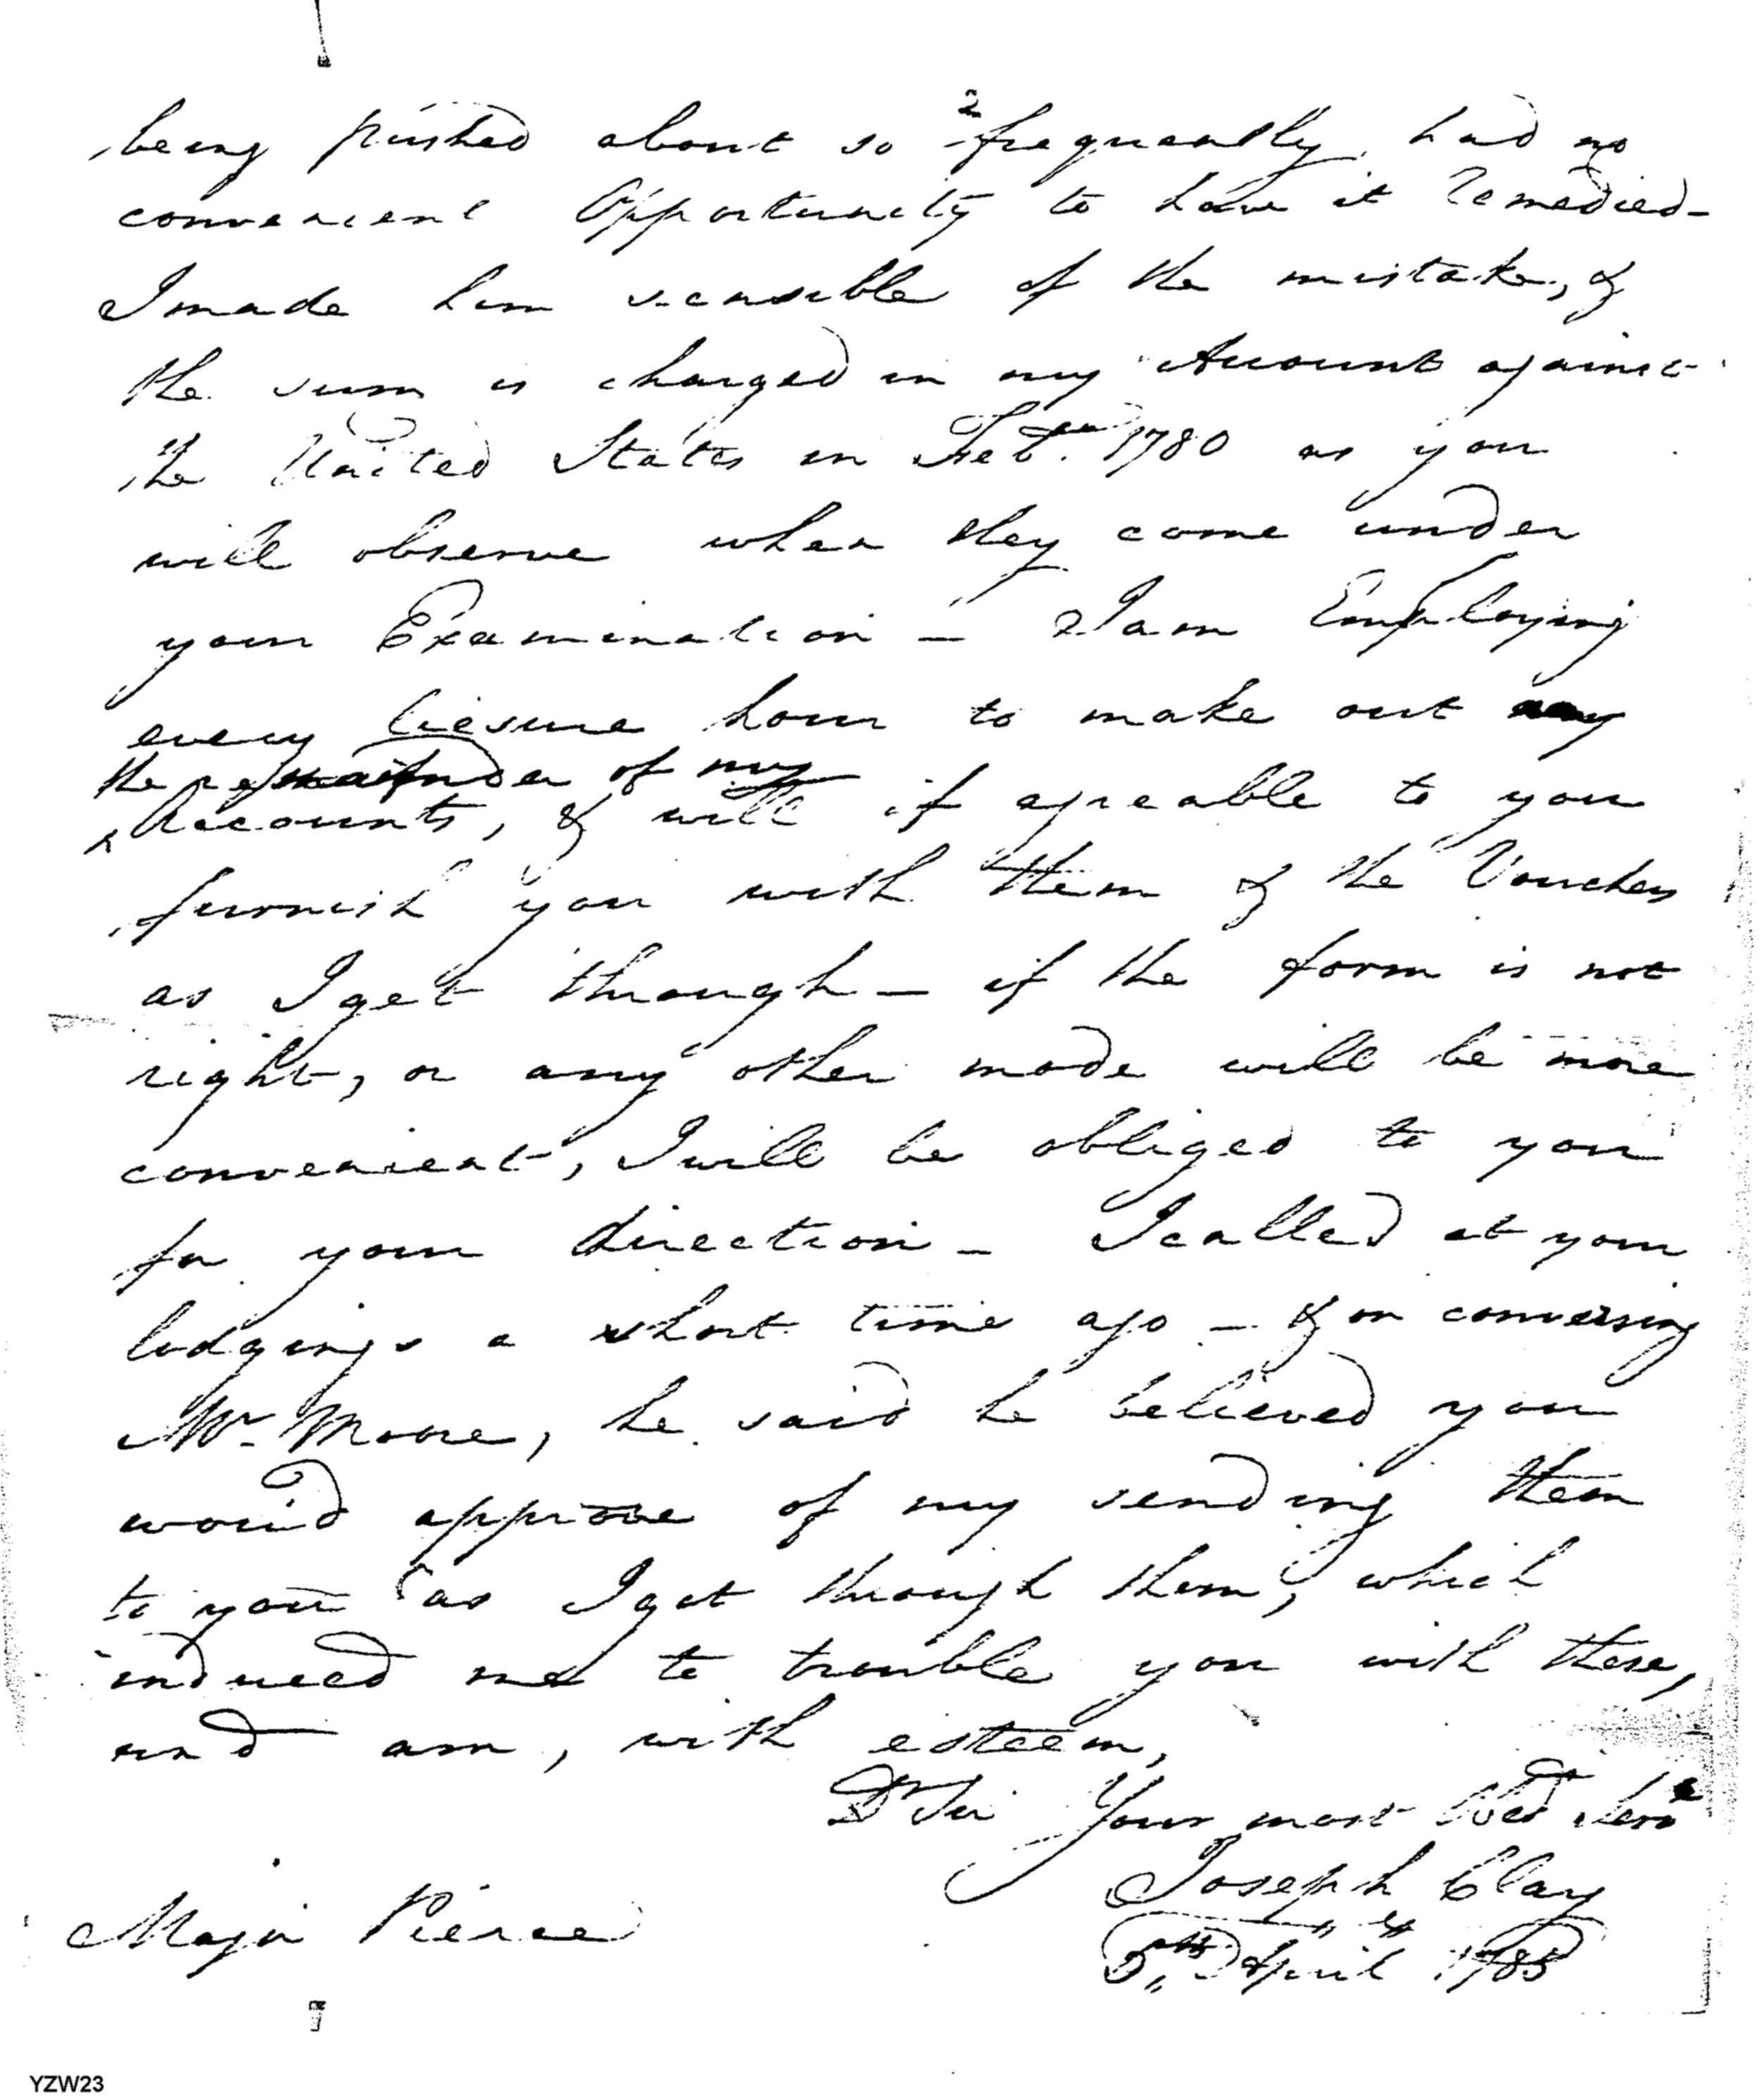 being pushed about so frequently, had no
convenient Opportunity to have it remedied-
I made him sensible of the mistake, &
the sum is charged in my Account against
the United States in Feby. 1780 as you
will observe when they come under
your Examination — I am Employing
every liesure hour to make out
the remainder of my
Accounts, & will if agreable to you
furnish you with them & the Vouchers
as I get through — if the form is not
right, or any other mode will be more
convenient, I will be obliged to you
for your direction — I called at your
lodgings a short time ago — & on conversing
Mr. Moore, he said he believed you
would approve of my sending them
to you as I get through them, which
induced me to trouble you with these,
and am, with esteem,
Dr Sir Your most Obed Servt
Joseph Clay
Major Pierce
5th April 1785
YZW23